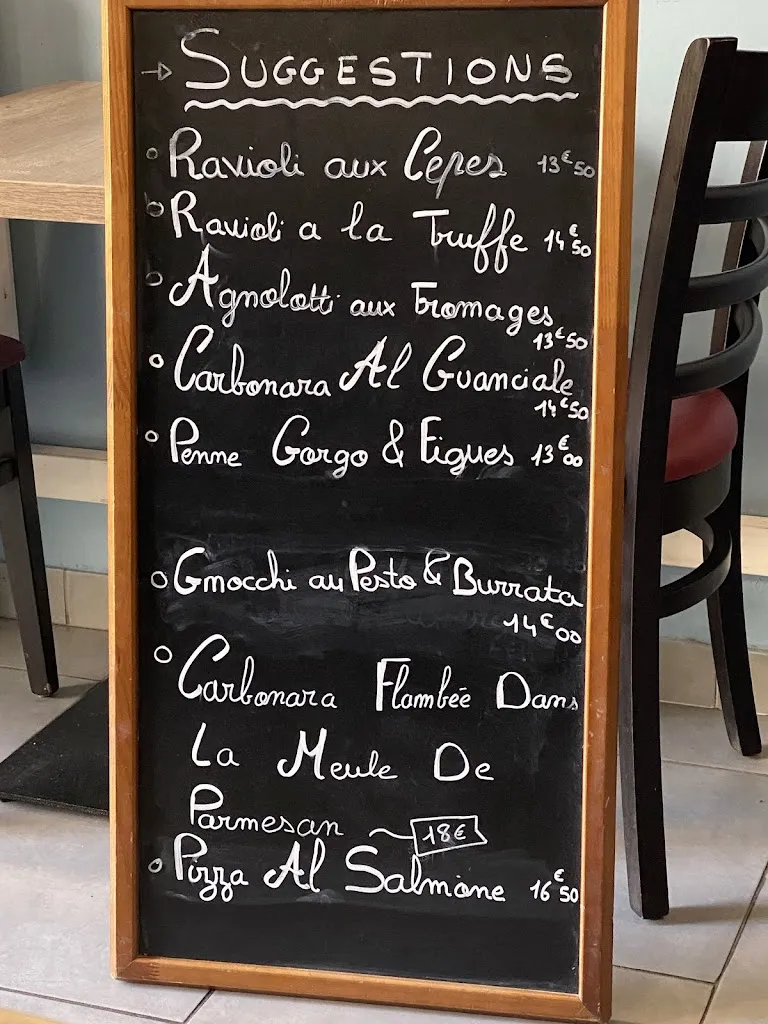 → SUGGESTIONS
o Ravioli aux Cepes 13€50
o Ravioli a la Truffe 14€50
o Agnolotti aux Fromages
13€50
o Carbonara Al Guanciale
14€50
o Penne Gorgo & Figues 13€00
o Gnocchi au Pesto & Burrata
14€00
o Carbonara Flambée Dans
La Meule De
Parmesan 18€
o Pizza Al Salmone 16€50